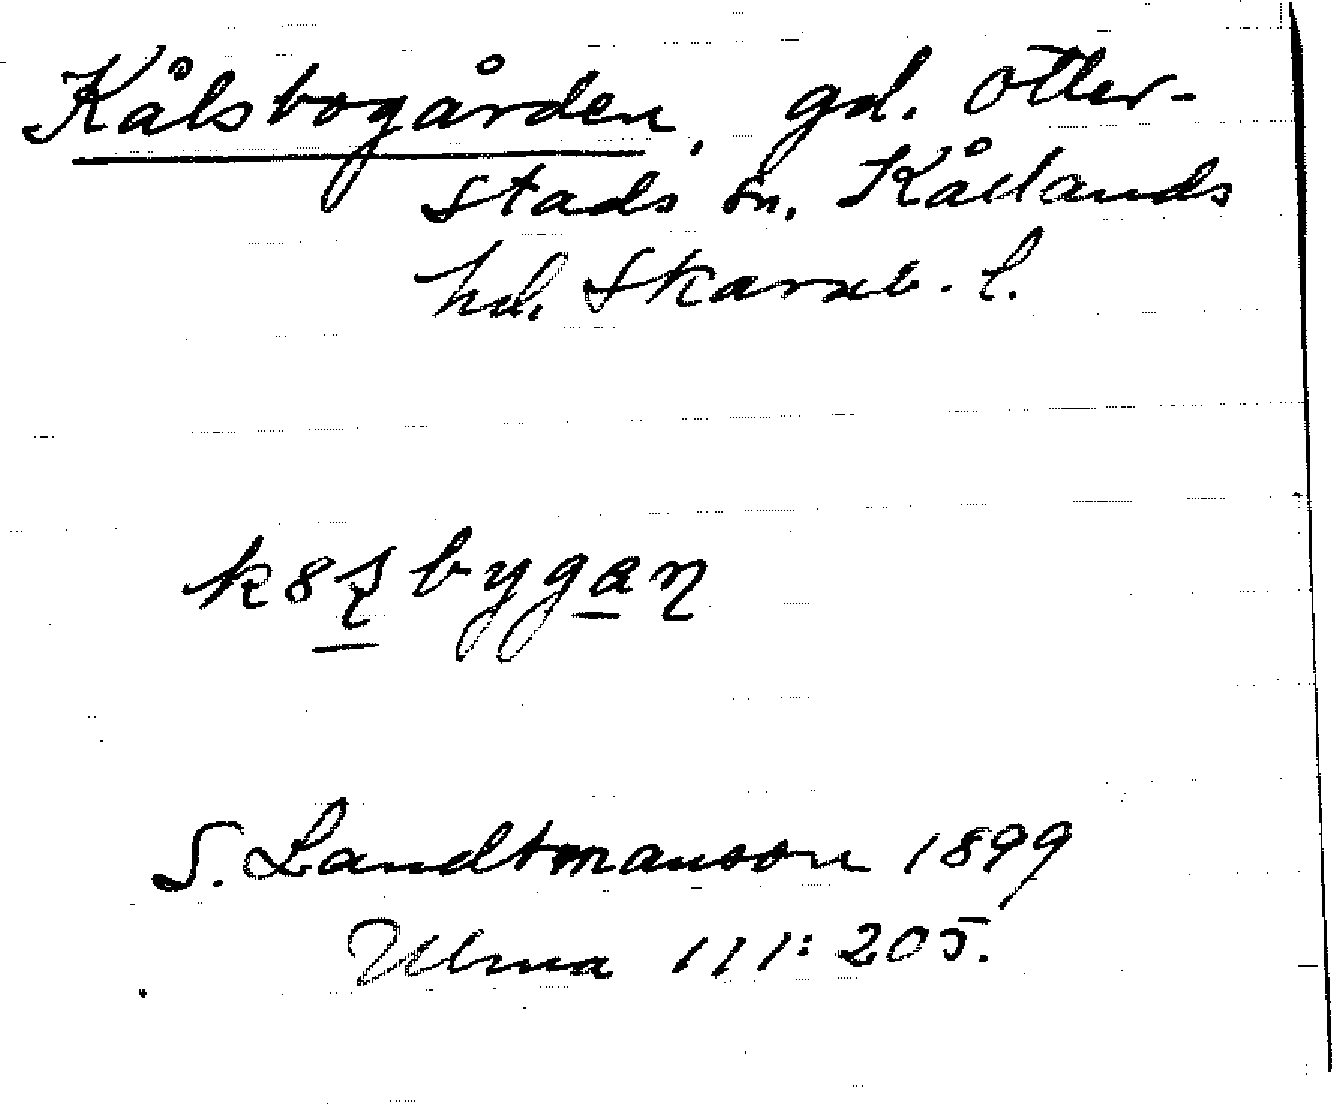 Kålsbogården, gd. Otter-
stads sn. Kållands
hd. Skarab. l.
S. Landtmanson 1899
Ulma 111: 205.